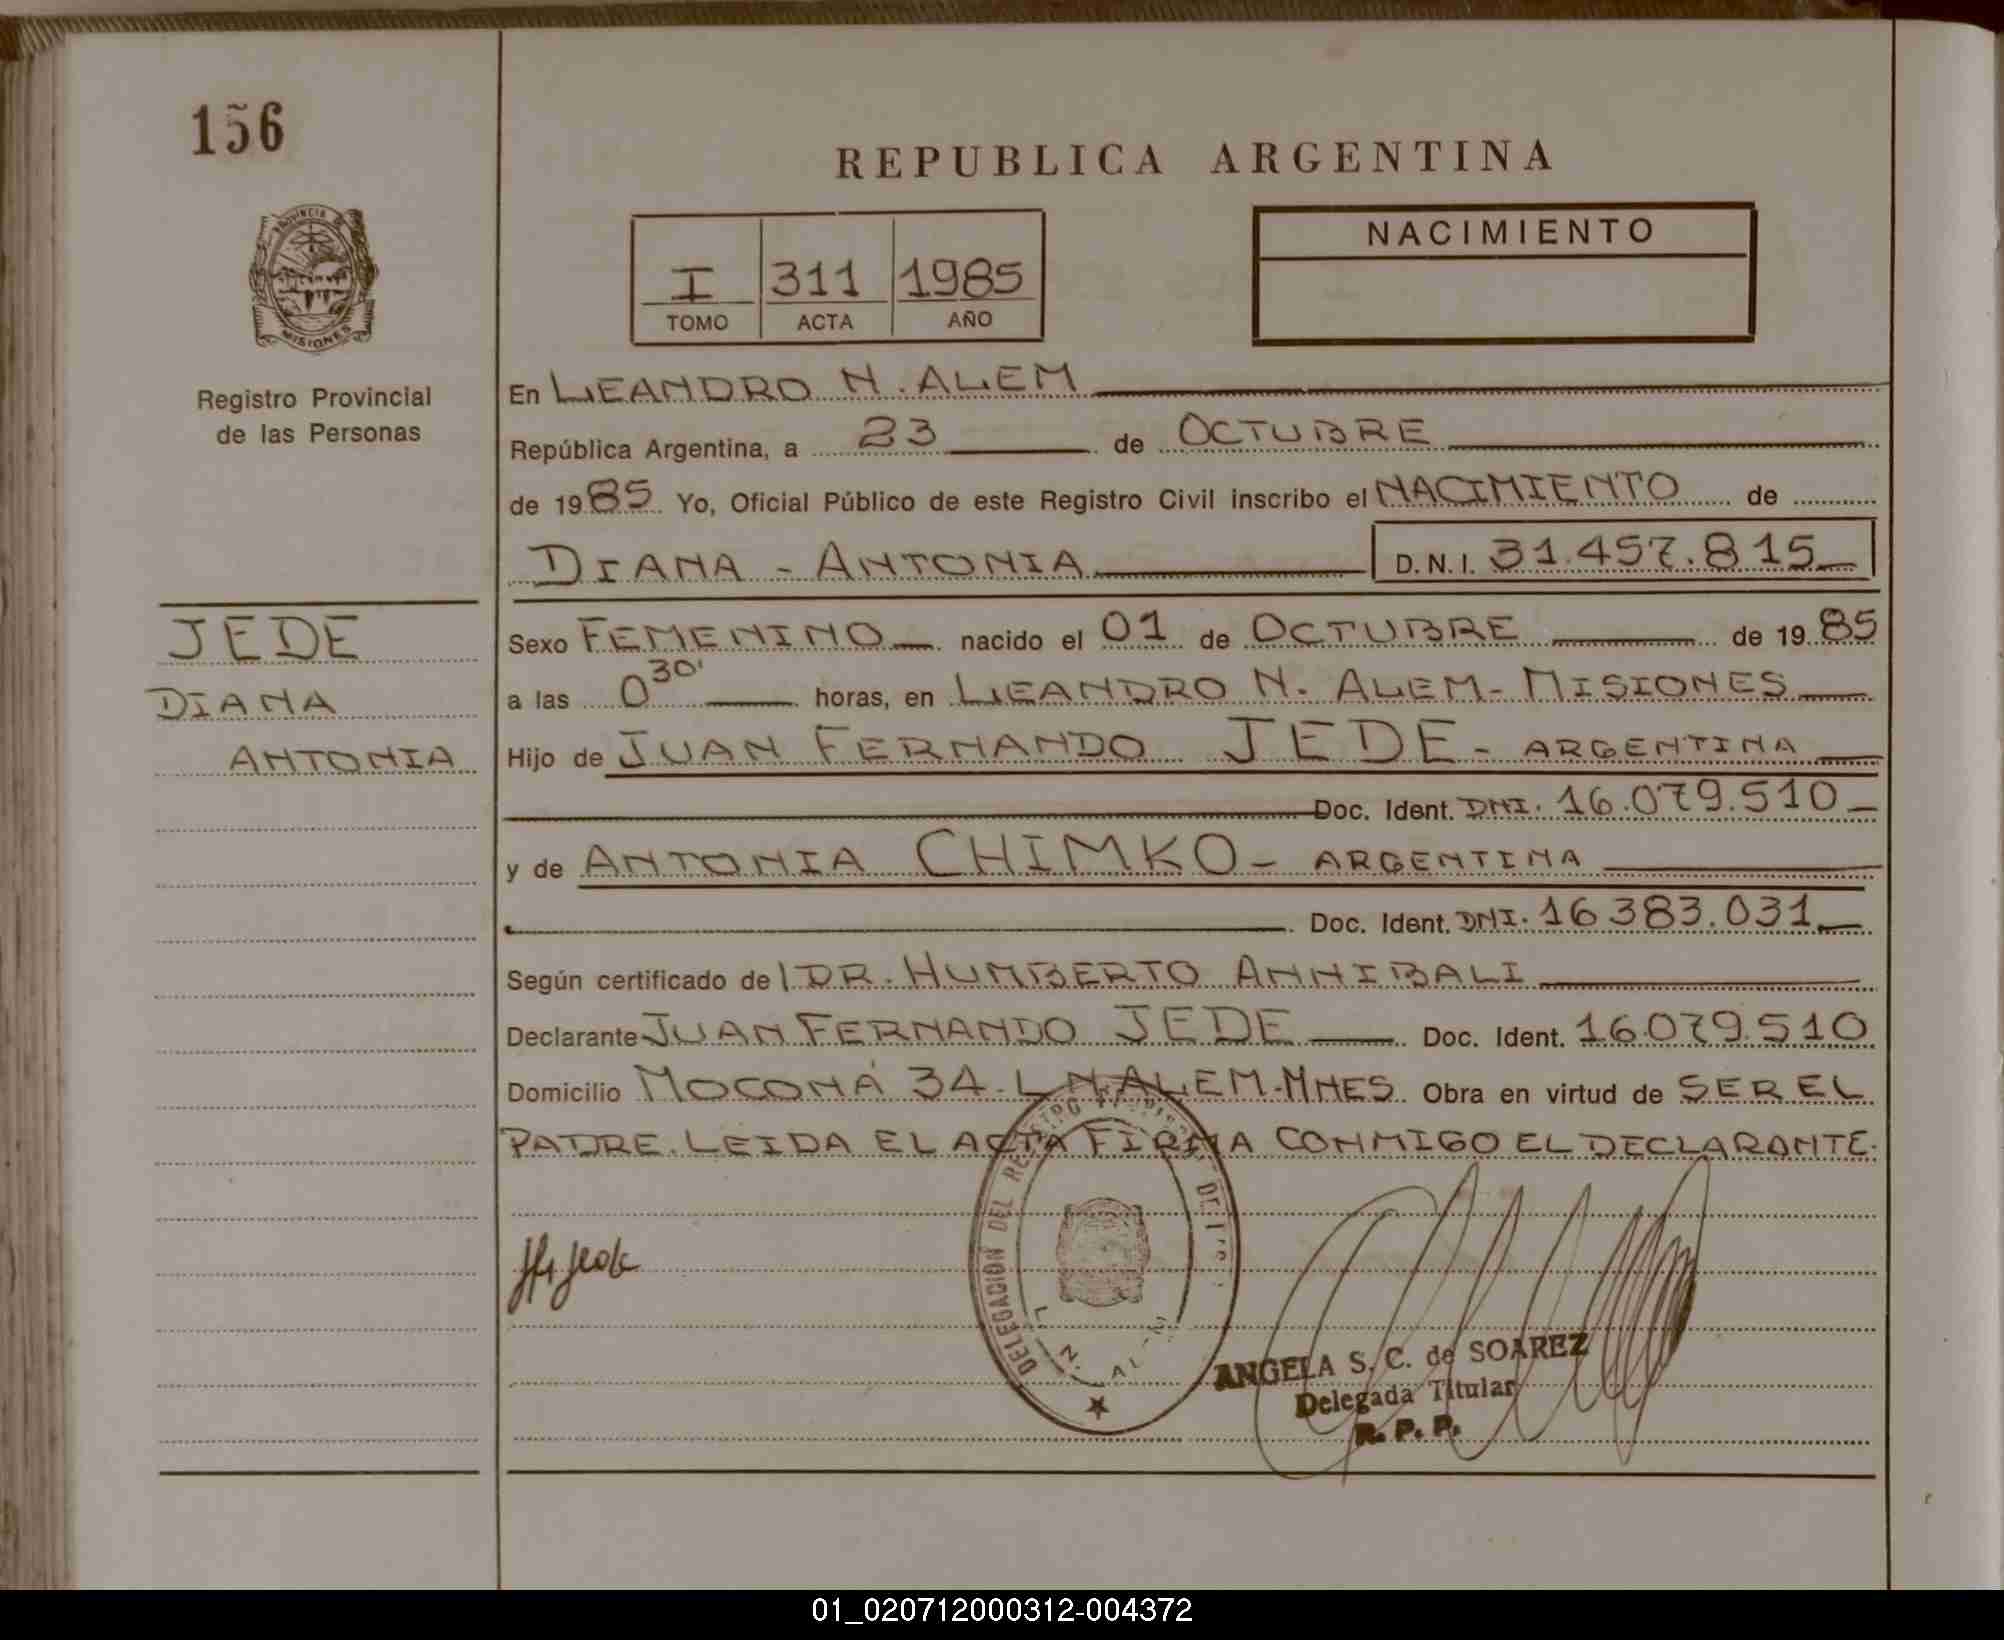 156
REPUBLICA ARGENTINA
PROVINCIA DE
MISIONES
Registro Provincial
de las Personas
I 311 1985
TOMO ACTA AÑO
NACIMIENTO
En LEANDRO N. ALEM
República Argentina, a 23 de OCTUBRE
de 1985 Yo, Oficial Público de este Registro Civil inscribo el NACIMIENTO de
DIANA - ANTONIA D.N.I. 31.457.815
JEDE
DIANA
ANTONIA
Sexo FEMENINO nacido el 01 de OCTUBRE de 1985
a las 0 30' horas, en LEANDRO N. ALEM - MISIONES
Hijo de JUAN FERNANDO JEDE - ARGENTINA
Doc. Ident. DNI. 16.079.510
y de ANTONIA CHIMKO - ARGENTINA
Doc. Ident. DNI. 16 383.031
Según certificado de l DR. HUMBERTO ANNIBALI
Declarante JUAN FERNANDO JEDE Doc. Ident. 16.079.510
Domicilio MOCONÁ 34 - L N. ALEM - MNES Obra en virtud de SER EL
PADRE. LEIDA EL ACTA FIRMA CONMIGO EL DECLARANTE.
DELEGACION DEL REGISTRO
L. N. ALEM
ANGELA S. C. de SOAREZ
Delegada Titular
R. P. P.
01_020712000312-004372